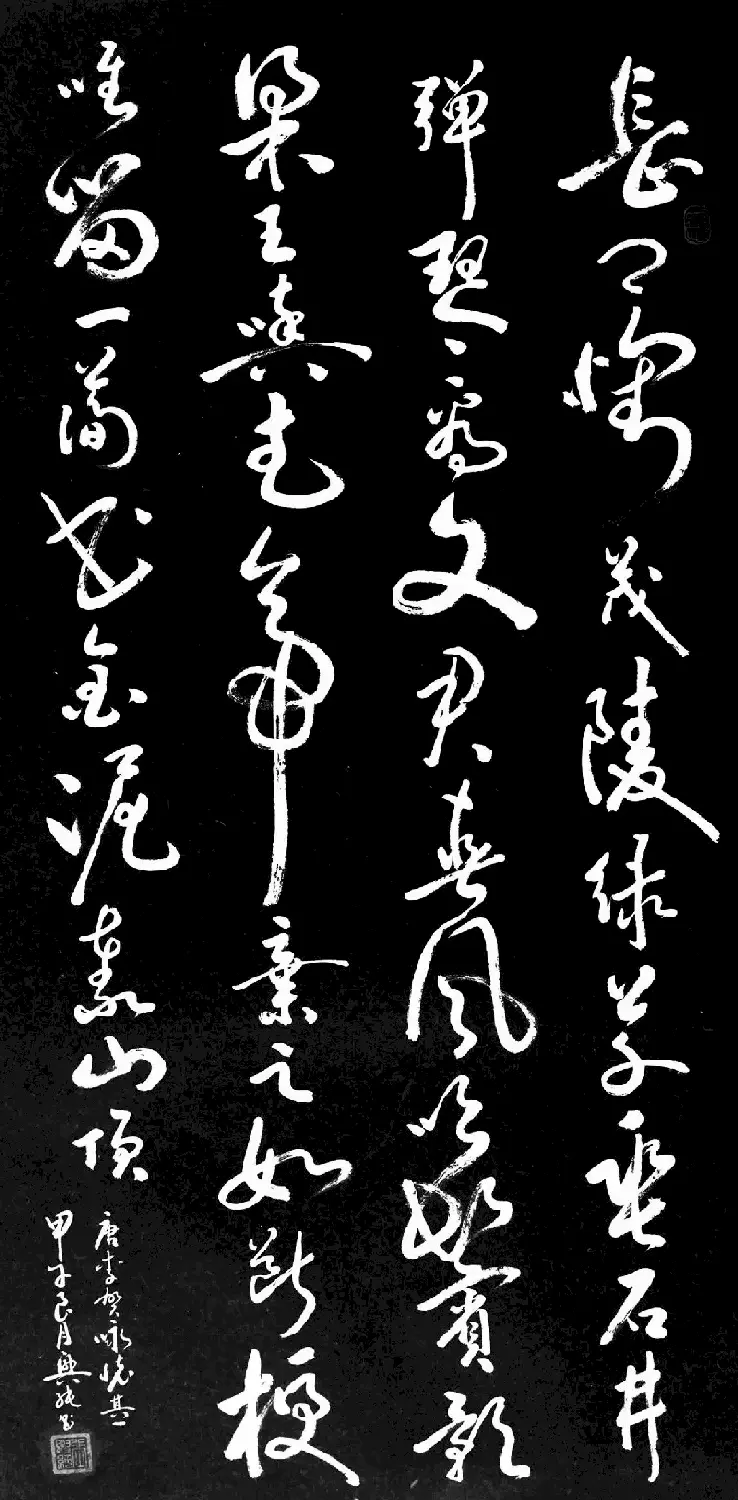 長卿懷茂陵綠草垂石井
彈琴看文君春風吹鬢影
梁王與武帝棄之如斷梗
唯留一簡書金泥泰山頂
唐李賀咏懷其一
甲子良月興純書